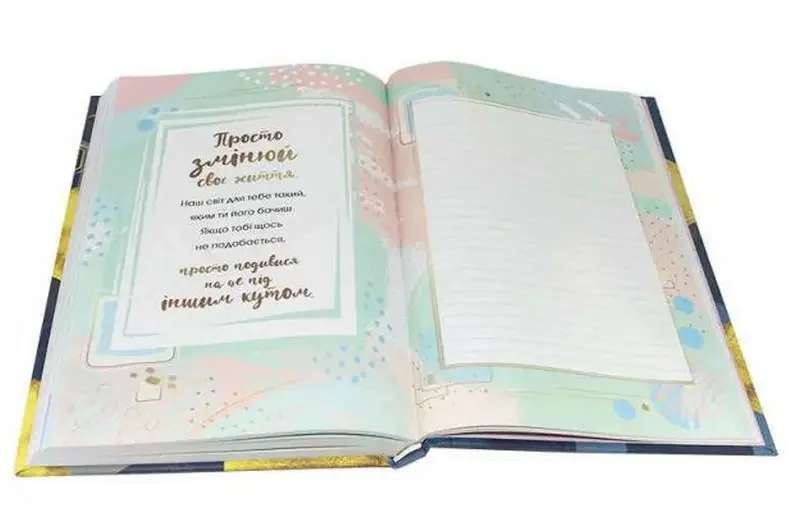 Просто
змінюй
своє життя.
Наш світ для тебе такий,
яким ти його бачиш.
Якщо тобі щось
не подобається,
просто подивися
на це під
іншим кутом.